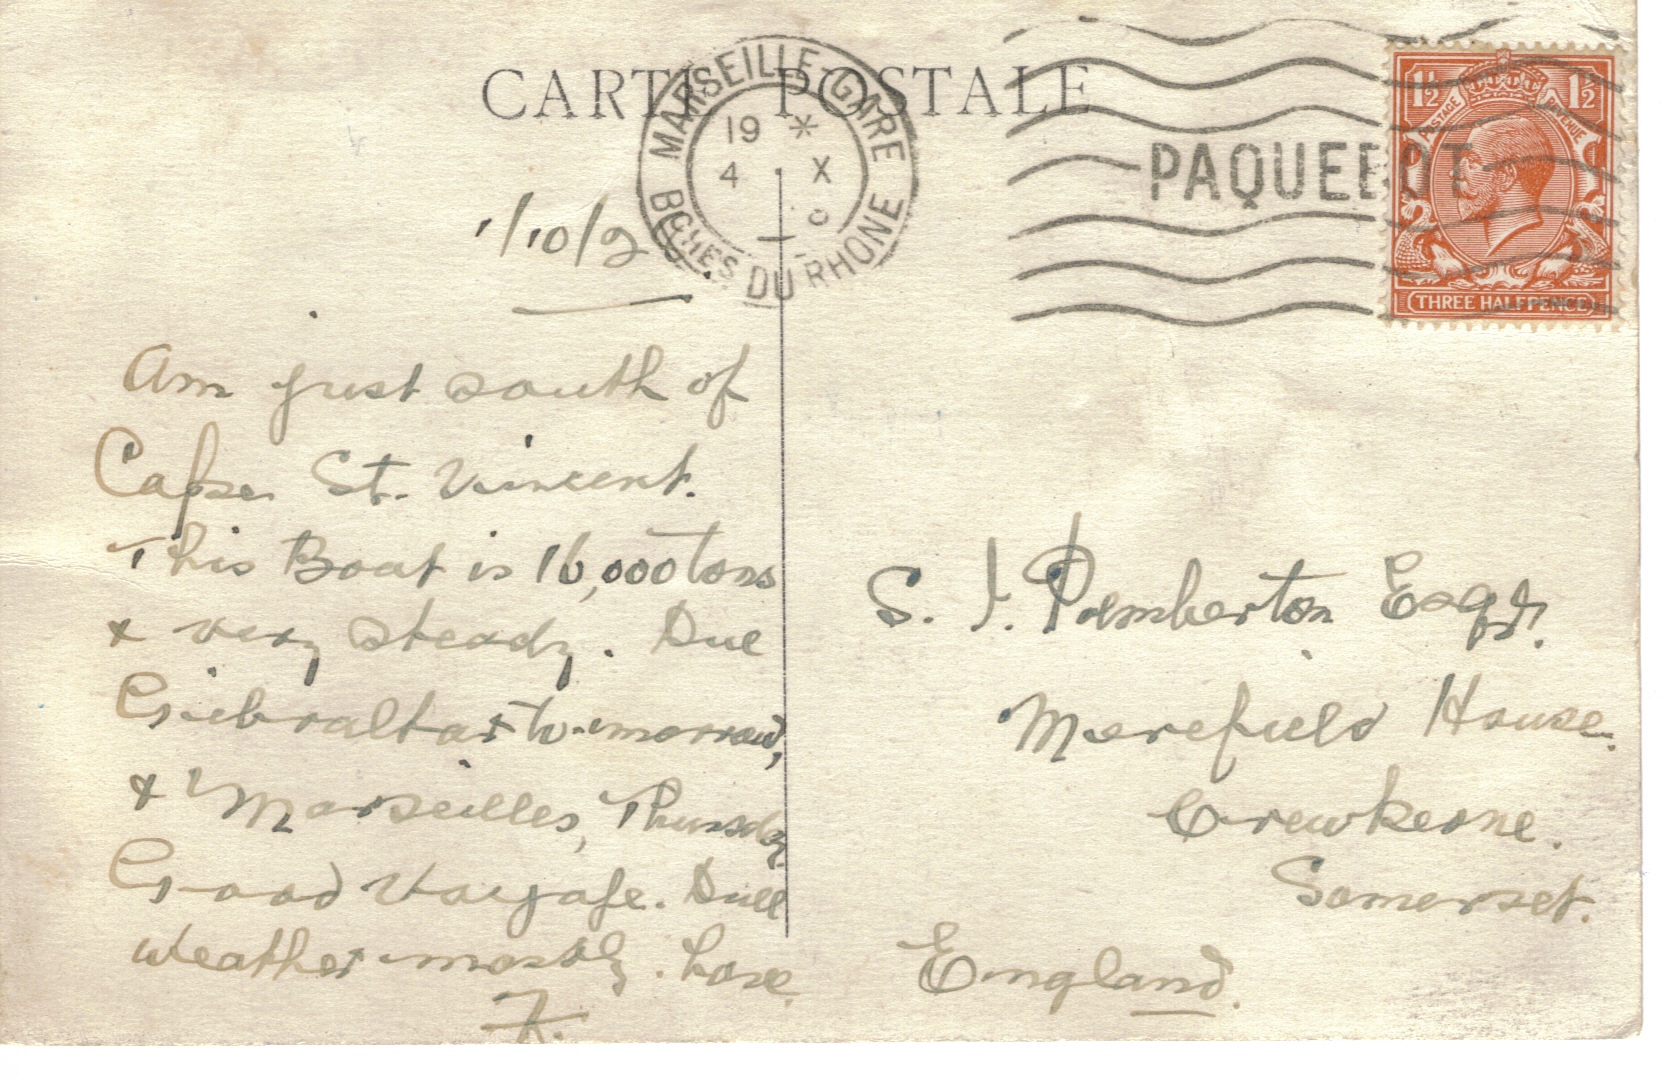 CARTE POSTALE
MARSEILLE-GARE
19 *
4 X
BCHES DU RHONE
PAQUEBOT
1½ 1½
POSTAGE REVENUE
THREE HALF PENCE
1/10/2
Am just south of
Cape St. Vincent.
This Boat is 16,000 Tons
& very steady. Due
Gibraltar to-morrow,
& Marseilles, Thursday.
Good Voyage. Dull
weather mostly. Love
F.
S. J. Pemberton Esqr.
Merefield House.
Crewkerne.
Somerset.
England.